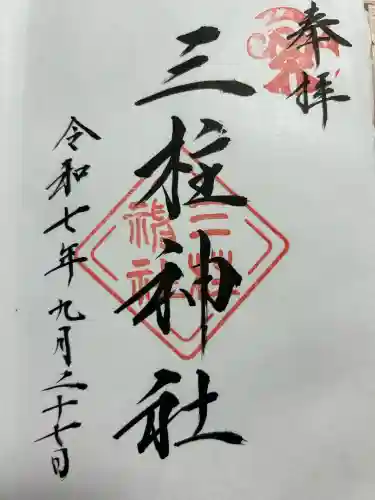 奉拝
三柱神社
三柱神社
令和七年九月二十七日